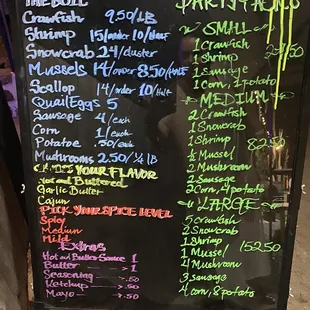 THE BOIL
Crawfish 9.50/LB
Shrimp 15/order 10/half
Snowcrab 24/cluster
Mussels 14/order 8.50/half
Scallop 14/order 10/half
Quail Eggs 5
Sausage 4/each
Corn 1/each
Potatoe .50/each
Mushrooms 2.50/¼ LB
YOUR FLAVOR
Hot and Buttered
Garlic Butter
Cajun
PICK YOUR SPICE LEVEL
Spicy
Medium
Mild
Extras
Hot and Butter Sauce 1
Butter 1
Seasoning .50
Ketchup .50
Mayo .50
PARTY PACKS
SMALL
1 Crawfish
1 Shrimp
1 Sausage
1 Corn, 1 Potato
MEDIUM
2 Crawfish
1 Snowcrab
1 Shrimp 82.50
½ Mussel
2 Mushroom
2 Sausage
2 Corn, 4 potato
LARGE
5 crawfish
2 Snowcrab
1 Shrimp
1 Mussel 152.50
4 Mushroom
3 Sausage
4 corn, 8 potato